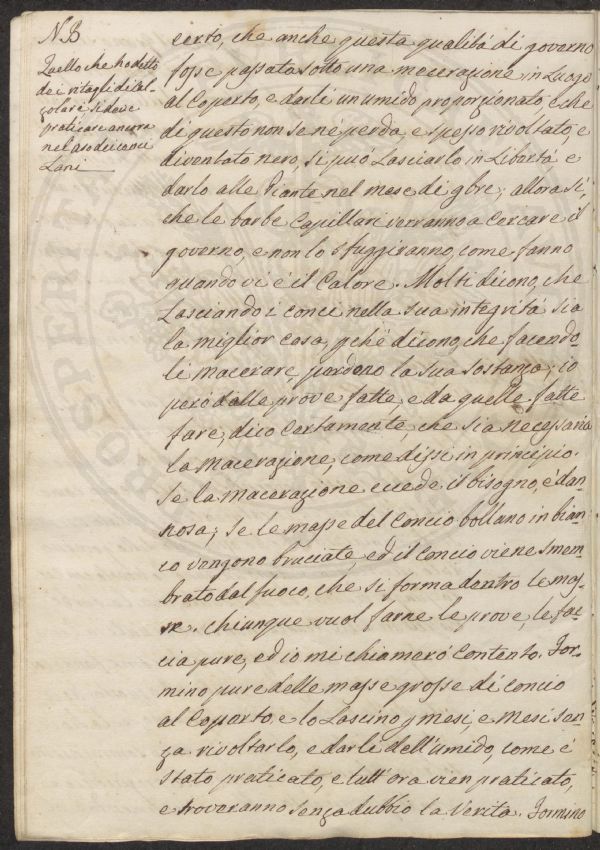 N.B
Quello che ho detto
dei ritagli di Al-
zolare si deve
praticare ancora
nel uso dei conci
Lani
certo, che anche questa qualità di governo
fosse passata sotto una macerazione in Luogo
al Coperto, e darli un umido proporzionato, e che
di questo non se né perda, e spesso rivoltato, e
diventato nero, si può Lasciarlo in Libertà e
darlo alle Piante nel mese di 9bre; allora si,
che le barbe Capillari verranno a Cercare il
governo, e non lo sfuggiranno, come fanno
quando vi é il Calore. Molti dicono, che
Lasciando i conci nella sua integrità sia
la miglior cosa, pché dicono, che facendo-
li macerare, perdono la sua sostanza; io
però dalle prove fatte, e da quelle fatte
fare, dico Certamente, che sia necessaria
la macerazione, come dissi in principio.
Se la macerazione eccede il bisogno, é dan-
nosa; se le masse del Concio bollano in bian-
co vengono bruciate, ed il Concio viene smem-
brato dal fuoco, che si forma dentro le mas-
se. Chiunque vuol farne le prove, le fac-
cia pure, ed io mi chiamerò Contento. For-
mino pure delle masse grosse di concio
al Coperto, e lo Lascino p mesi, e mesi sen-
za rivoltarlo, e darli dell'umido, come é
stato praticato, e tutt'ora vien praticato,
e troveranno senza dubbio la Verità. Formino
PROSPERITÉ